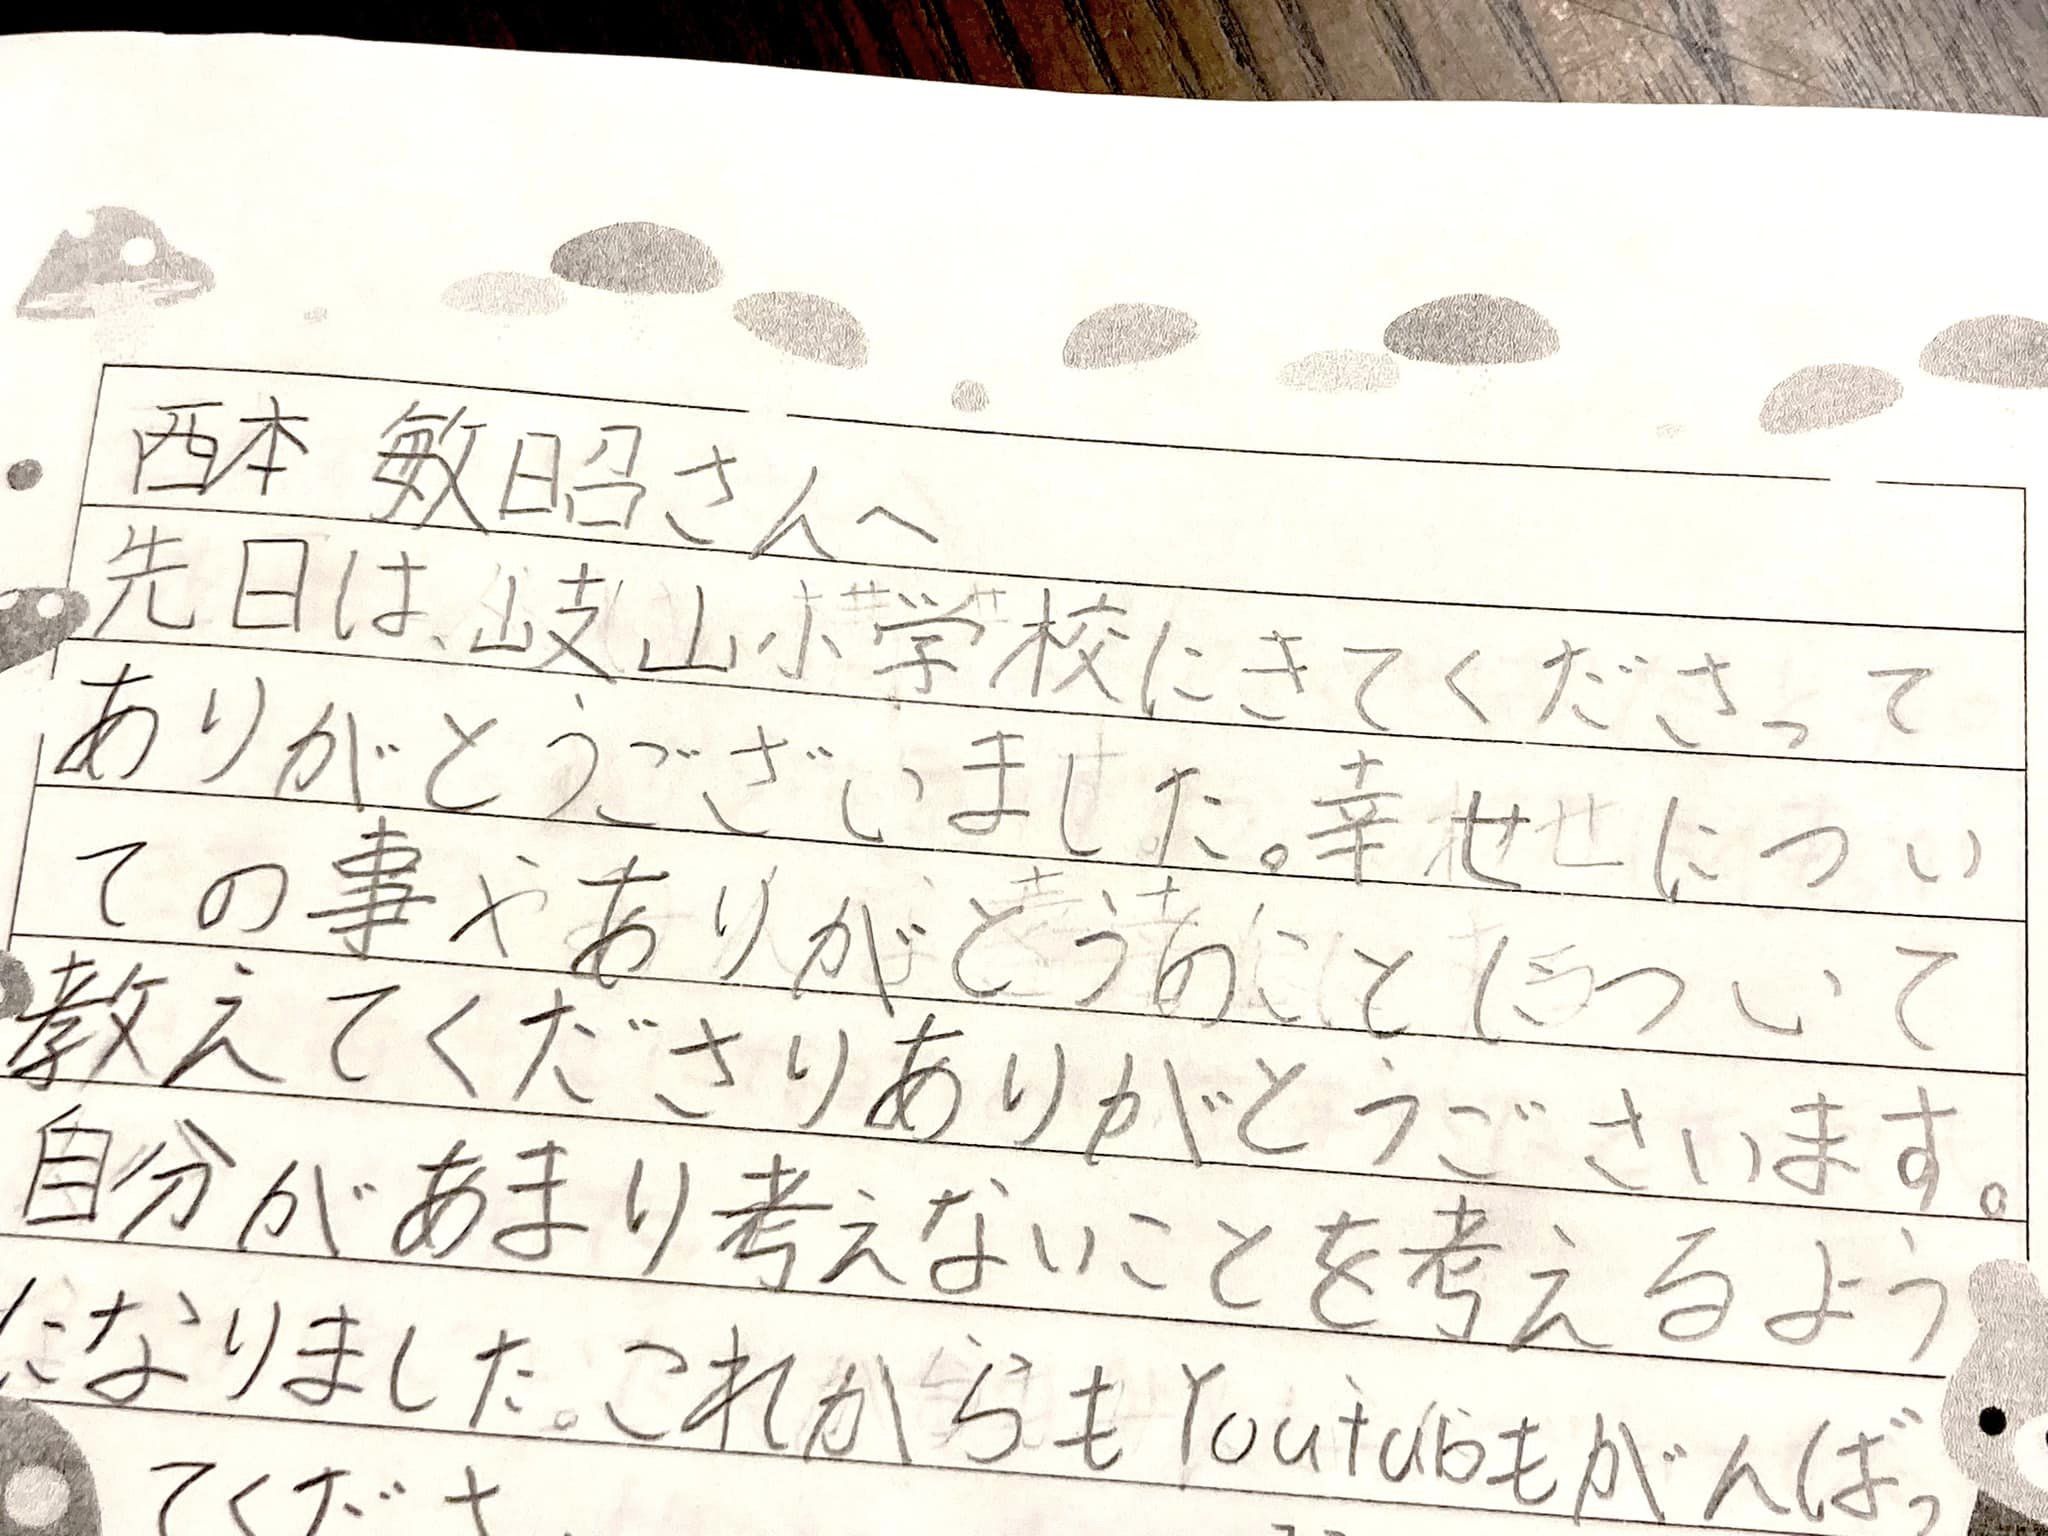 西本 敏昭さんへ
先日は、岐山小学校にきてくださって
ありがとうございました。幸せについ
ての事やありがとうのことについて
教えてくださりありがとうございます。
自分があまり考えないことを考えるよう
になりました。これからもYoutubもがんばっ
てくださ